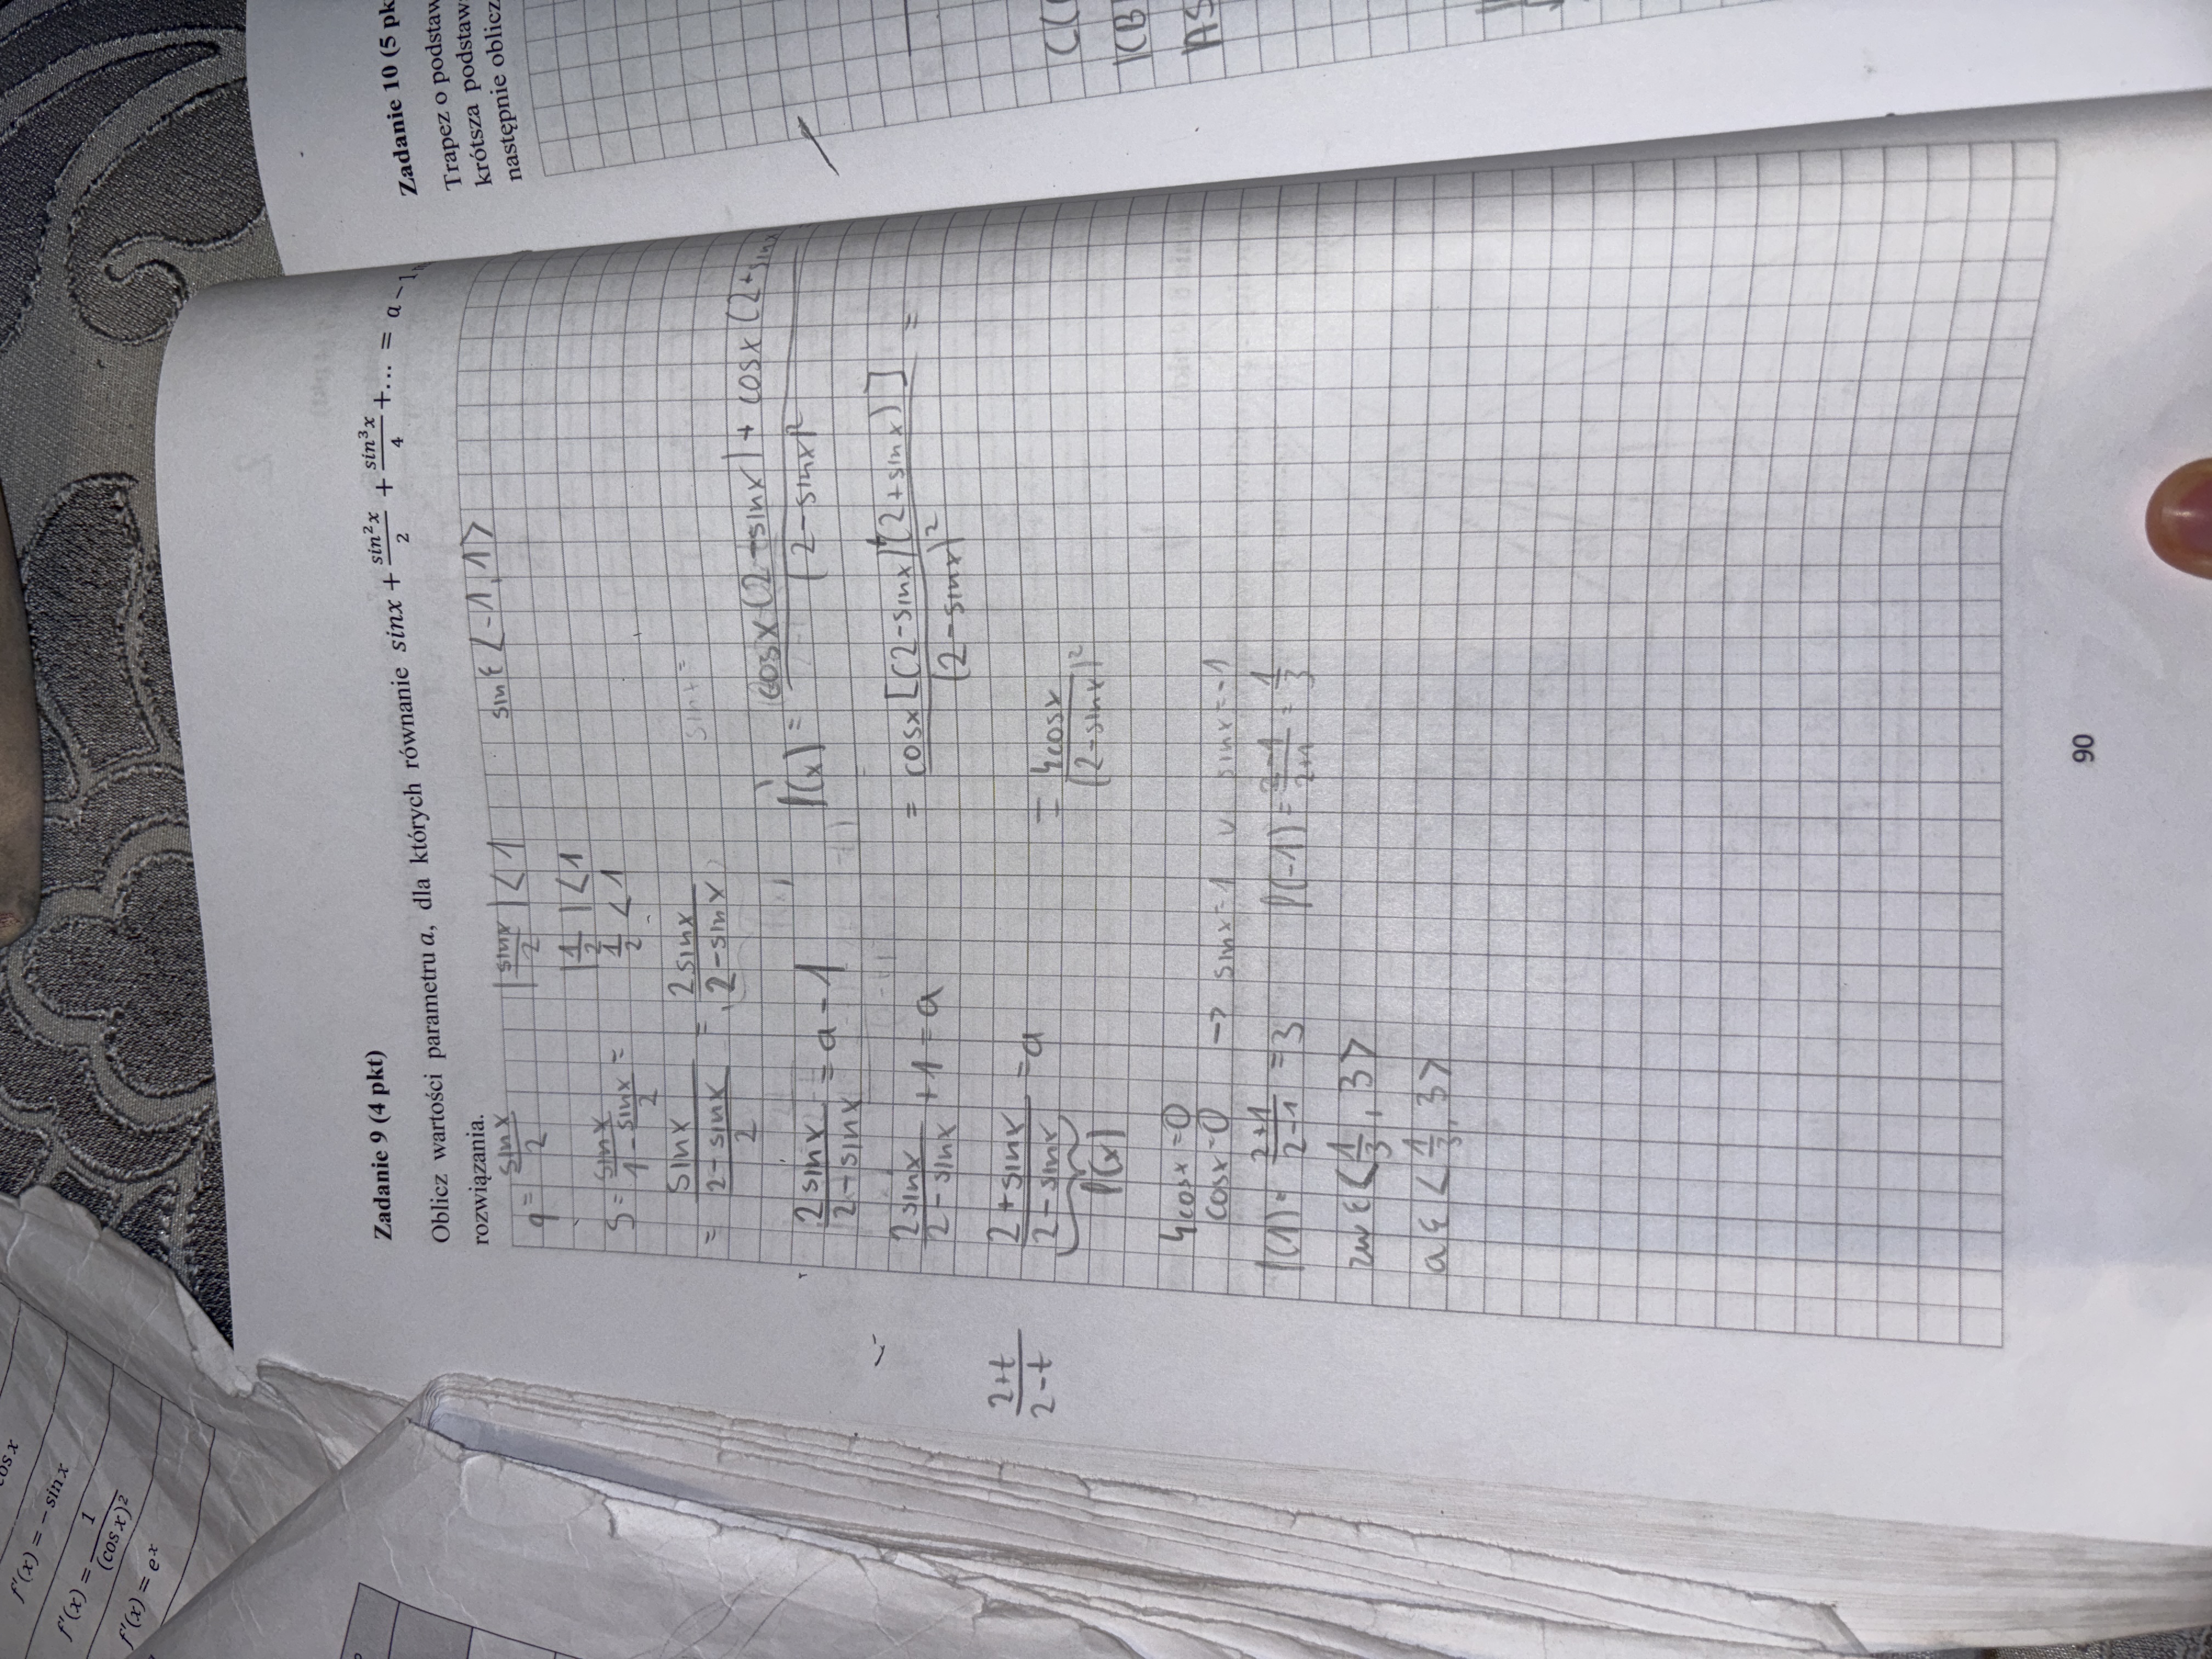 cos x
f'(x) = − sin x
f'(x) = 1/(cos x)²
f'(x) = eˣ
Zadanie 9 (4 pkt)
Oblicz wartości parametru a, dla których równanie sinx + sin²x/2 + sin³x/4 + … = a − 1
rozwiązania.
q = sinx/2
|sinx/2| < 1
sin ∈ <-1, 1>
|1/2| < 1
1/2 < 1
S = sinx/(1 − sinx/2) =
= sinx/((2 − sinx)/2) = 2sinx/(2 − sinx)
sin =
2sinx/(2 − sinx) = a − 1
f'(x) = (cosx(2 − sinx) + cosx(2 + sinx/(2 − sinx)²
2sinx/(2 − sinx) + 1 = a
= cosx[(2 − sinx)+(2 + sinx)]/(2 − sinx)² =
(2 + sinx)/(2 − sinx) = a
f(x)
= 4cosx/(2 − sinx)²
(2+t)/(2−t)
4cosx = 0
cosx = 0 → sinx = 1 v sinx = −1
f(1) = (2+1)/(2−1) = 3
f(−1) = (2−1)/(2+1) = 1/3
zw ∈ <1/3, 3>
a ∈ <1/3, 3>
90
Zadanie 10 (5 pk
Trapez o podstaw
krótsza podstaw
następnie oblicz
|CB
|AS